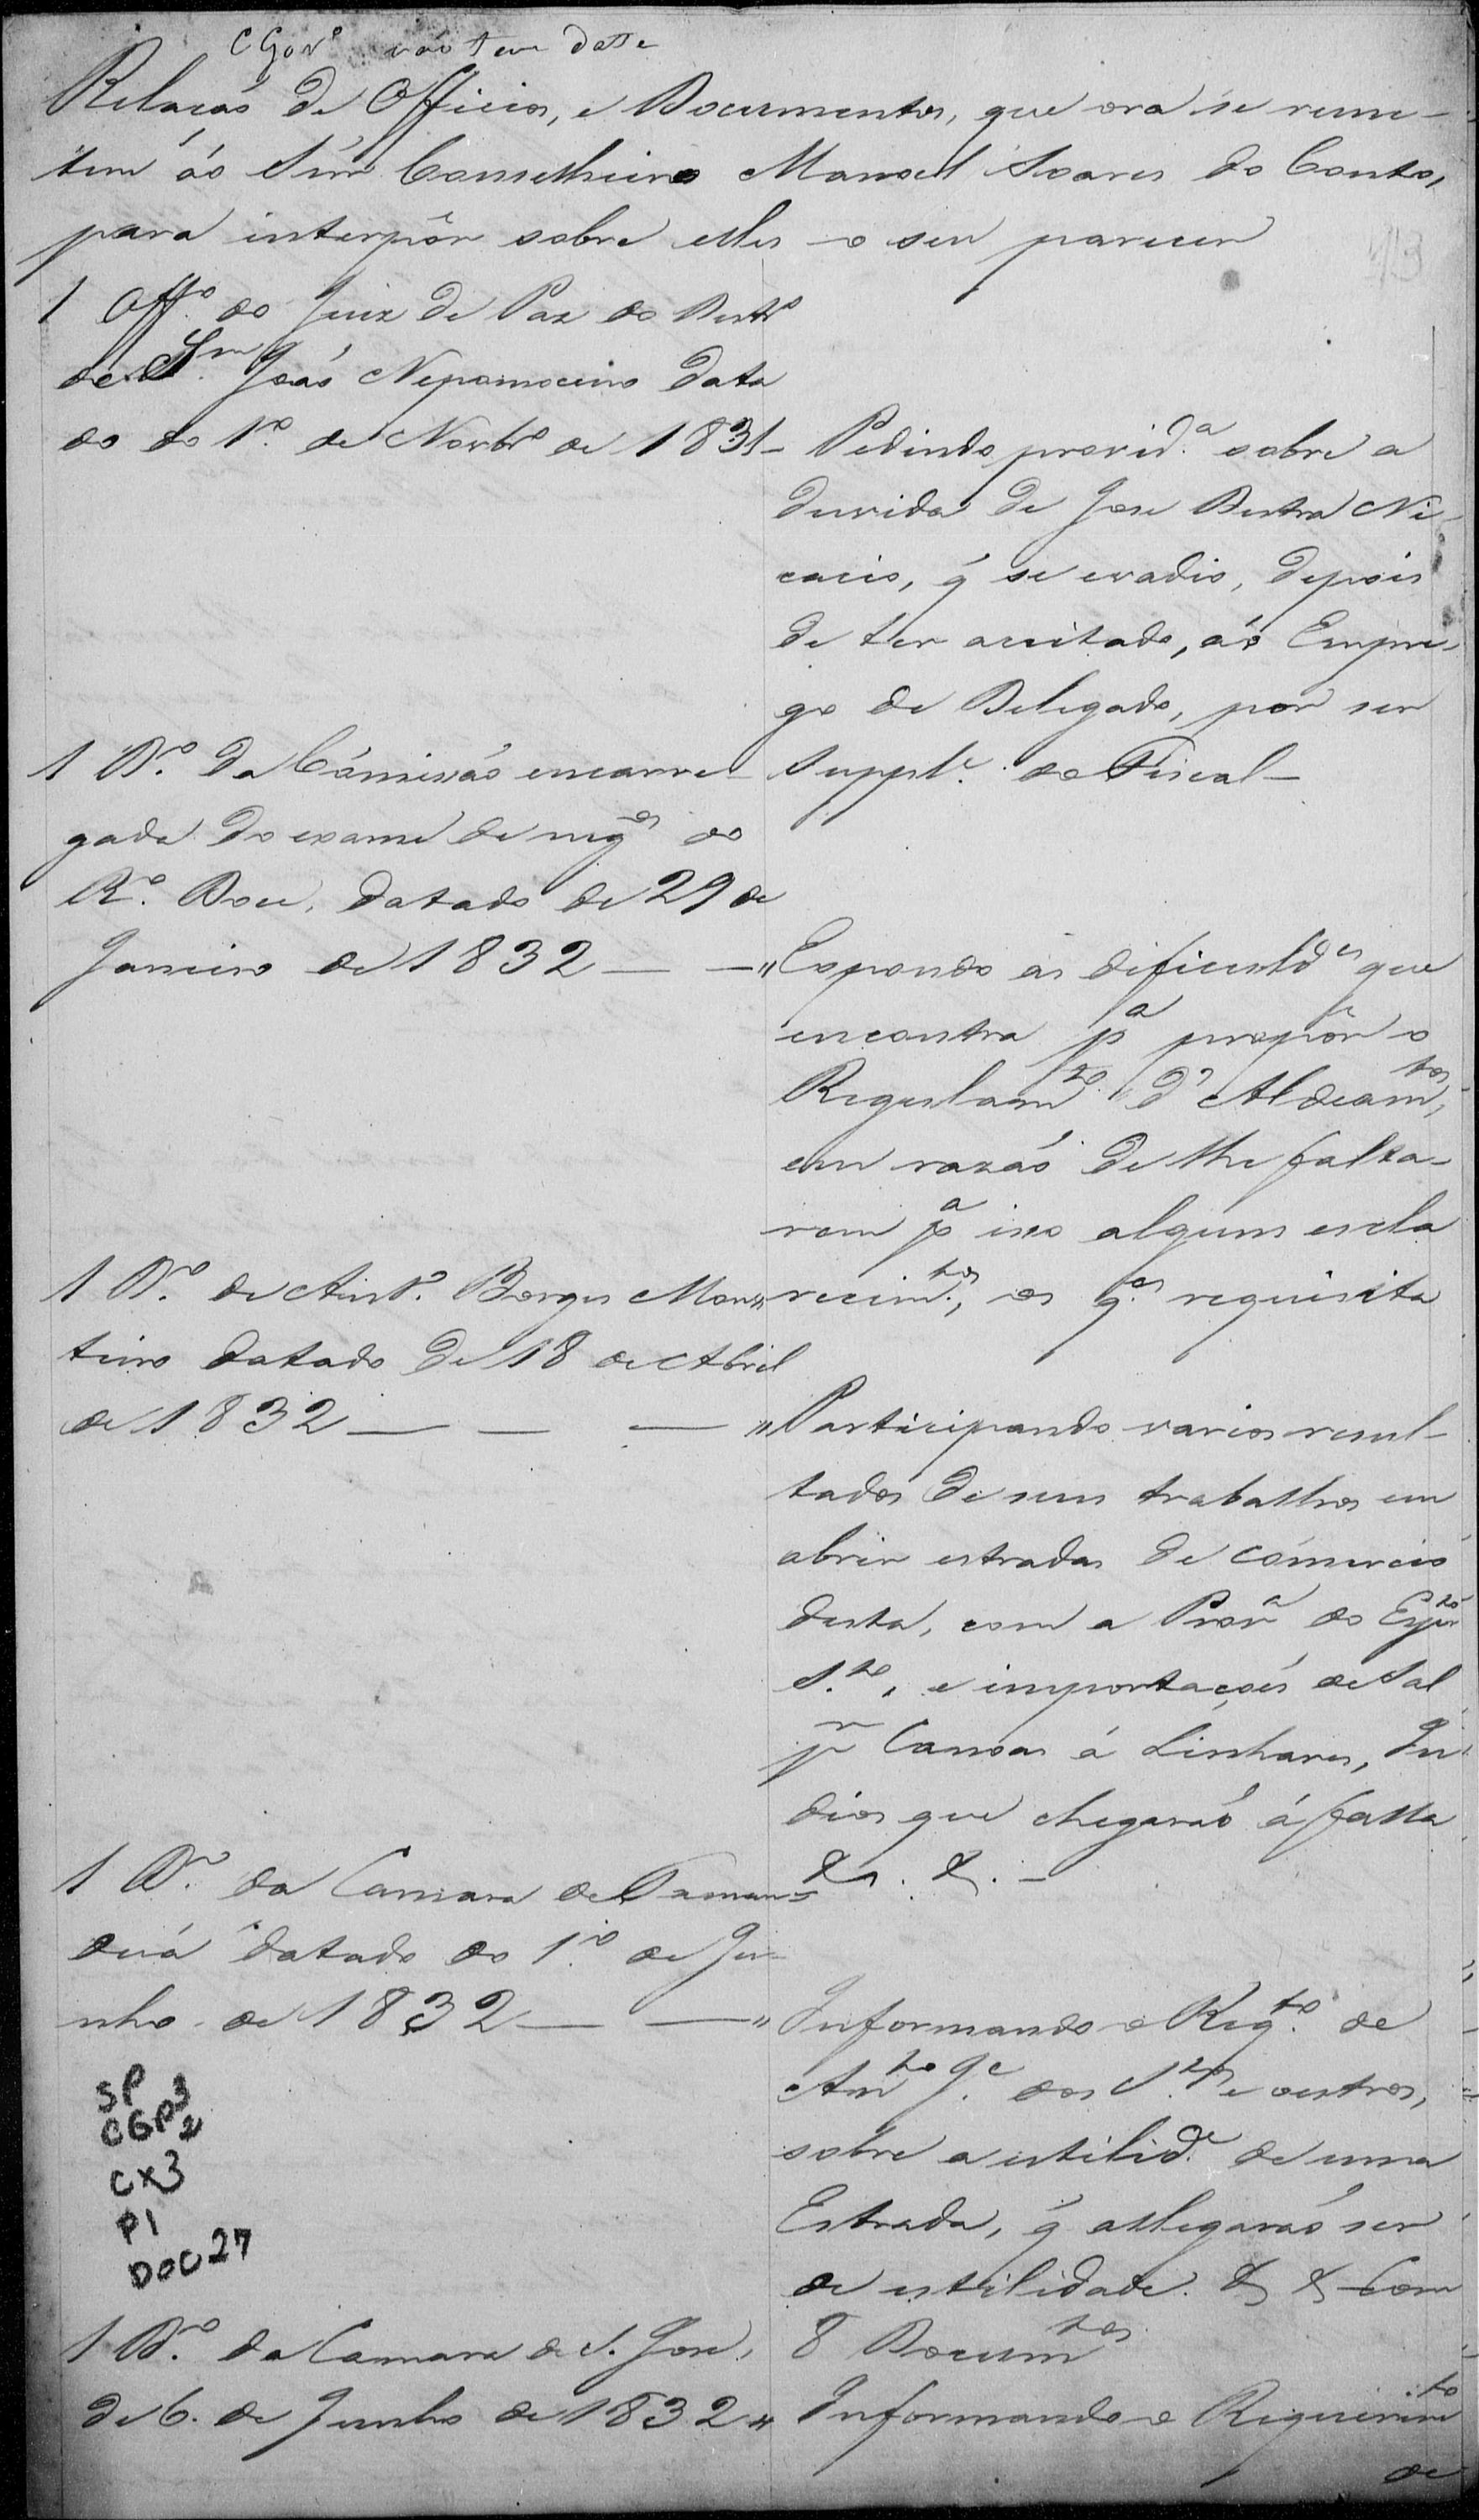 C Gov.º não tem data
Relação de Officios, e Documentos, que ora se reme-
tem áo Snr. Conselheiro Manoel Soares do Couto,
para interpôr sobre elles o seu parecer
1 Off.º do Juiz de Paz do Destr.º
de Sm. João Nepomoceno data
do do 1.º de Novbr.º de 1831 -
Pedindo provid.ª sobre a
duvida de Jose Dutra Ni-
cacio, q̃ se evadio, depois
de ter aceitado, áo Empre-
go de Delegado, por ser
Suppl.e do Fiscal -
1 D.º da Cómissão encarre-
gada do exame de neg.os do
R.º Doce, datado de 29 de
Janeiro de 1832 — — "
Expondo as dificuld.es que
encontra p.ª propôr o
Regulam.to d'Aldeam.tos,
em razão de lhe falta-
rem p.ª isso alguns escla
recim.tos, os q.es requisita
1 D.º de Ant.º Borges Mon"
teiro datado de 18 de Abril
de 1832 — — — "
Participando varios resul-
tados de seus trabalhos em
abrir estradas de cómercio
desta, com a Prov.ª do Espir.to
S.to, e importações de Sal
p.r Canoas á Linhares, In
dios que chegarão á falla
&a. &. -
1 D.º da Camara de Taman-
duá datado do 1.º de Ju-
nho de 1832 — — "
Informando o Req.to de
Ant.o J.e dos S.tos e outros,
sobre a utilid.e de uma
Estrada, q̃ allegarão ser
de utilidade. & & Com
8 Docum.tos
SP
CGP3
2
CX3
P1
DOC 27
1 D.º da Camara de S. Jose,
de 6. de Junho de 1832 "
Informando o Requerim.to
de